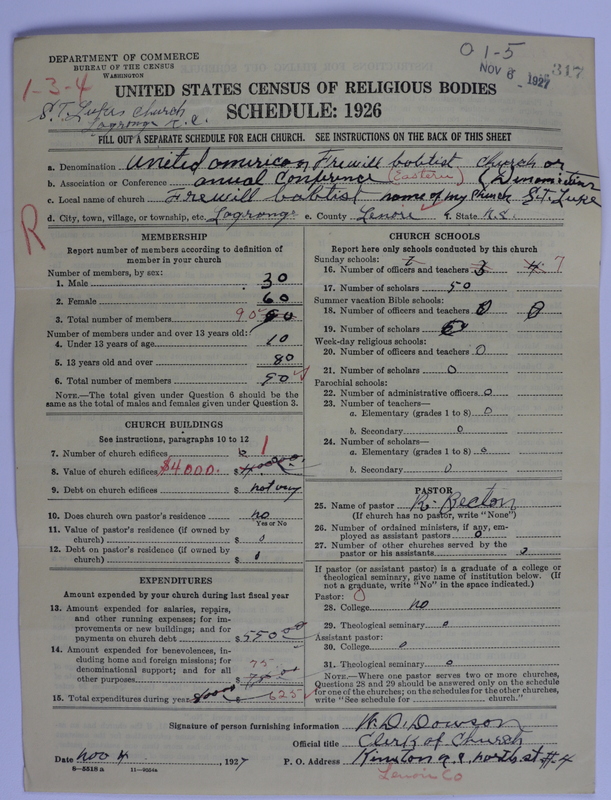 DEPARTMENT OF COMMERCE
BUREAU OF THE CENSUS
WASHINGTON
1-3-4
01-5
NOV 8 1927
317
UNITED STATES CENSUS OF RELIGIOUS BODIES
SCHEDULE: 1926
S.T. Lukes Church
Lagrange N.C.
FILL OUT A SEPARATE SCHEDULE FOR EACH CHURCH. SEE INSTRUCTIONS ON THE BACK OF THIS SHEET
a. Denomination United american Frewill babtist church or
b. Association or Conference annual Conference (Eastern) (Denomination
c. Local name of church Frewill babtist name of my church S.T. Luke
d. City, town, village, or township, etc. Lagrange e. County Lenore f. State N.C.
R
MEMBERSHIP
Report number of members according to definition of
member in your church
Number of members, by sex:
1. Male 30
2. Female 60
3. Total number of members 90
Number of members under and over 13 years old:
4. Under 13 years of age 10
5. 13 years old and over 80
6. Total number of members 90
NOTE.—The total given under Question 6 should be
same as the total of males and females given under Question 3.
CHURCH BUILDINGS
See instructions, paragraphs 10 to 12
7. Number of church edifices 1
8. Value of church edifices $4000. $
9. Debt on church edifices $ not very
10. Does church own pastor's residence? no
Yes or No
11. Value of pastor's residence (if owned by
church) $ 0
12. Debt on pastor's residence (if owned by
church) $ 0
EXPENDITURES
Amount expended by your church during last fiscal year
13. Amount expended for salaries, repairs,
and other running expenses; for im-
provements or new buildings; and for
payments on church debt $ 550 00
14. Amount expended for benevolences, in-
cluding home and foreign missions; for
denominational support; and for all 75.
other purposes $
15. Total expenditures during year 625
CHURCH SCHOOLS
Report here only schools conducted by this church
Sunday schools:
16. Number of officers and teachers 3 4 7
17. Number of scholars 50
Summer vacation Bible schools:
18. Number of officers and teachers 0 0
19. Number of scholars
Week-day religious schools:
20. Number of officers and teachers 0
21. Number of scholars 0
Parochial schools:
22. Number of administrative officers 0
23. Number of teachers—
a. Elementary (grades 1 to 8) 0
b. Secondary 0
24. Number of scholars—
a. Elementary (grades 1 to 8) 0
b. Secondary 0
PASTOR
25. Name of pastor R. Recton
(If church has no pastor, write "None")
26. Number of ordained ministers, if any, em-
ployed as assistant pastors 0
27. Number of other churches served by the
pastor or his assistants
If pastor (or assistant pastor) is a graduate of a college or
theological seminary, give name of institution below. (If
not a graduate, write "No" in the space indicated.)
Pastor: 0
28. College no
29. Theological seminary 0
Assistant pastor:
30. College 0
31. Theological seminary 0
NOTE.—Where one pastor serves two or more churches,
Questions 28 and 29 should be answered only on the schedule
for one of the churches; on the schedules for the other churches,
write "See schedule for church."
Signature of person furnishing information W.D. Dowson
Official title Clerk of Church
Date nov 4, 1927 P. O. Address Kinston n.c. north st #.4
8—5518 a 11—9594a
Lenoir Co